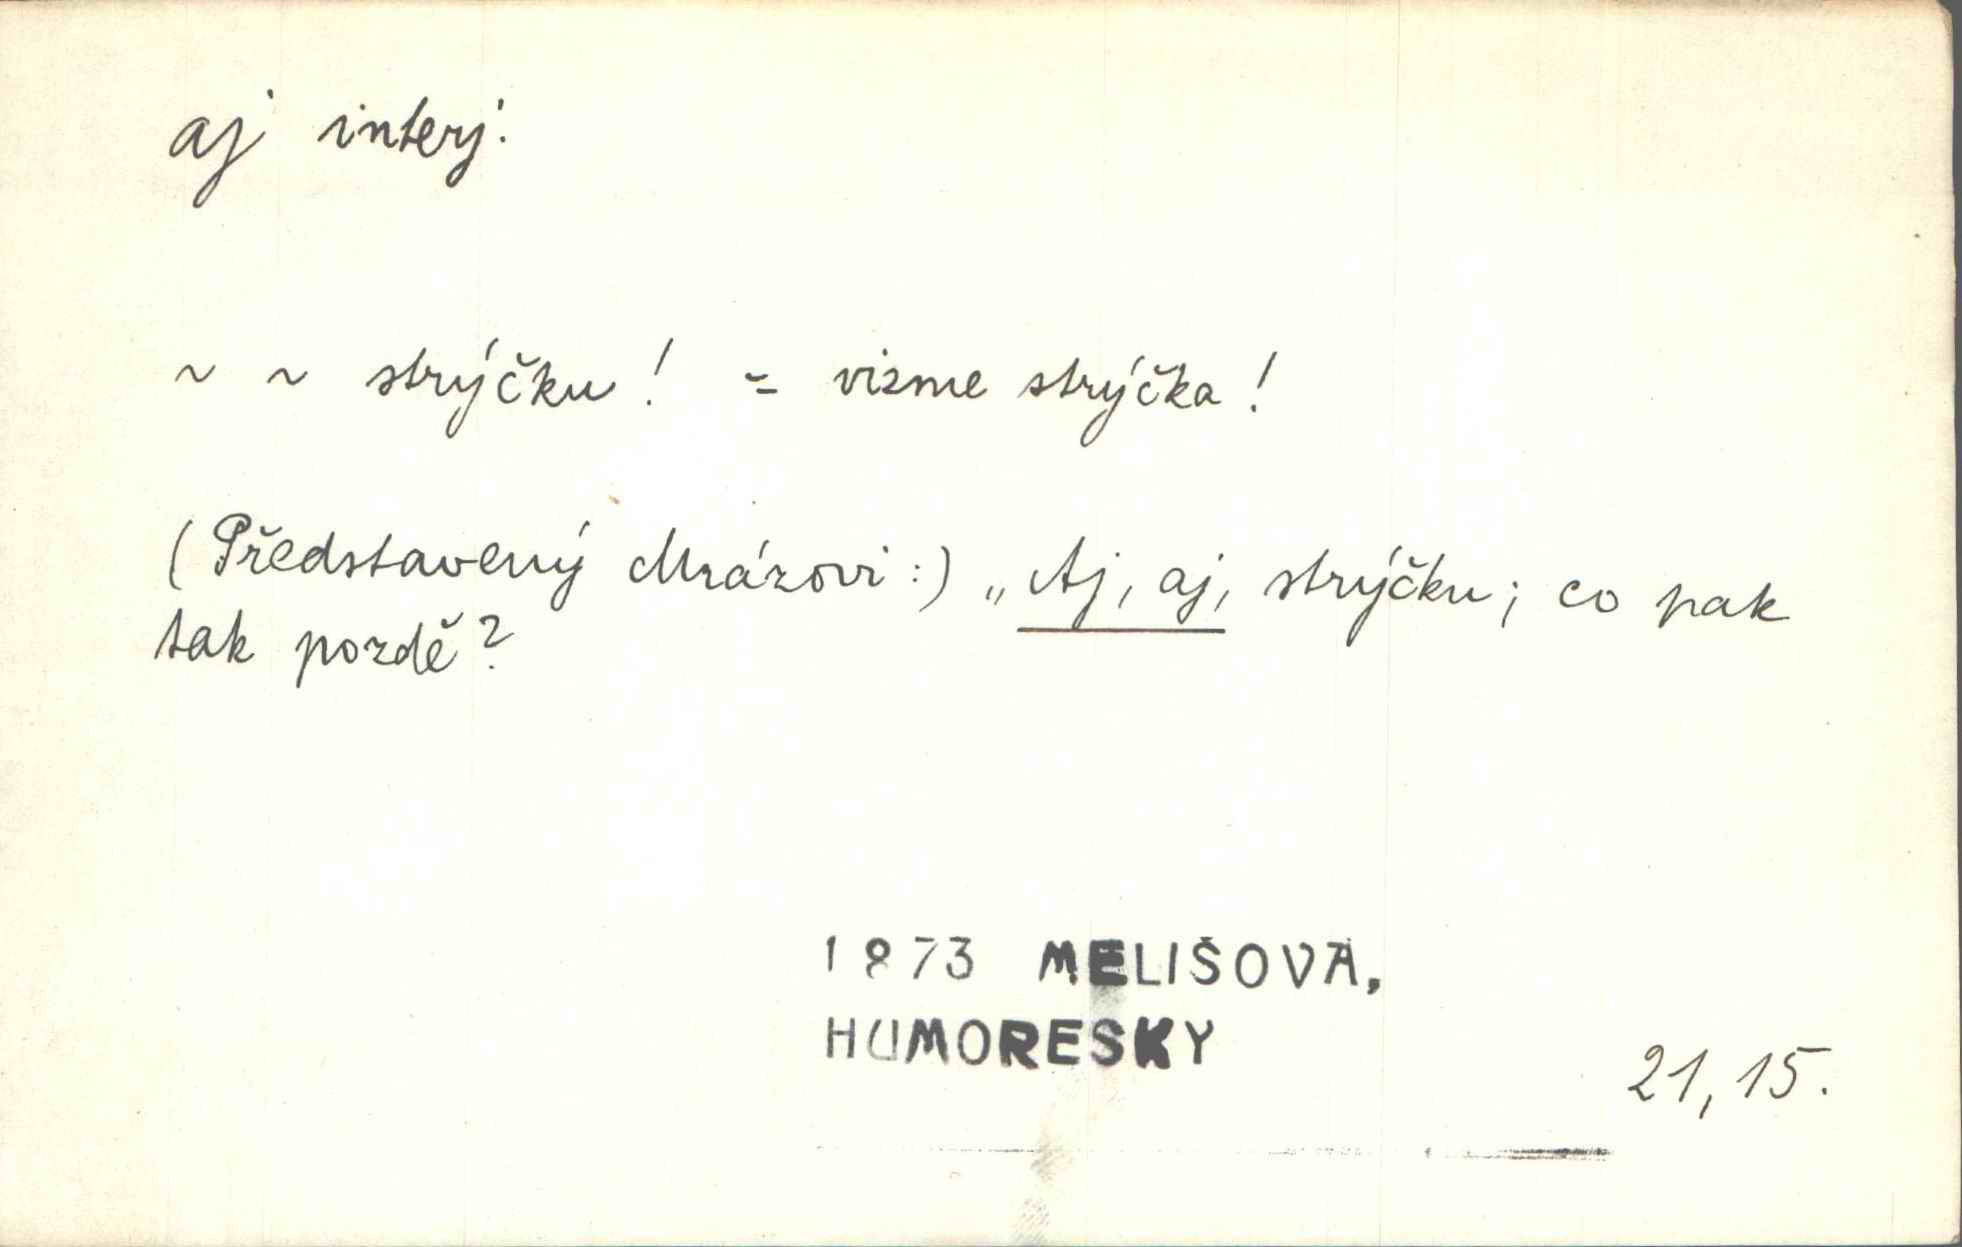 aj interj.
~ ~ strýčku! = vizme strýčka!
(Představený Mrázovi:) „Aj, aj, strýčku; co pak
tak pozdě?
1873 MELIŠOVA,
HUMORESKY
21, 15.